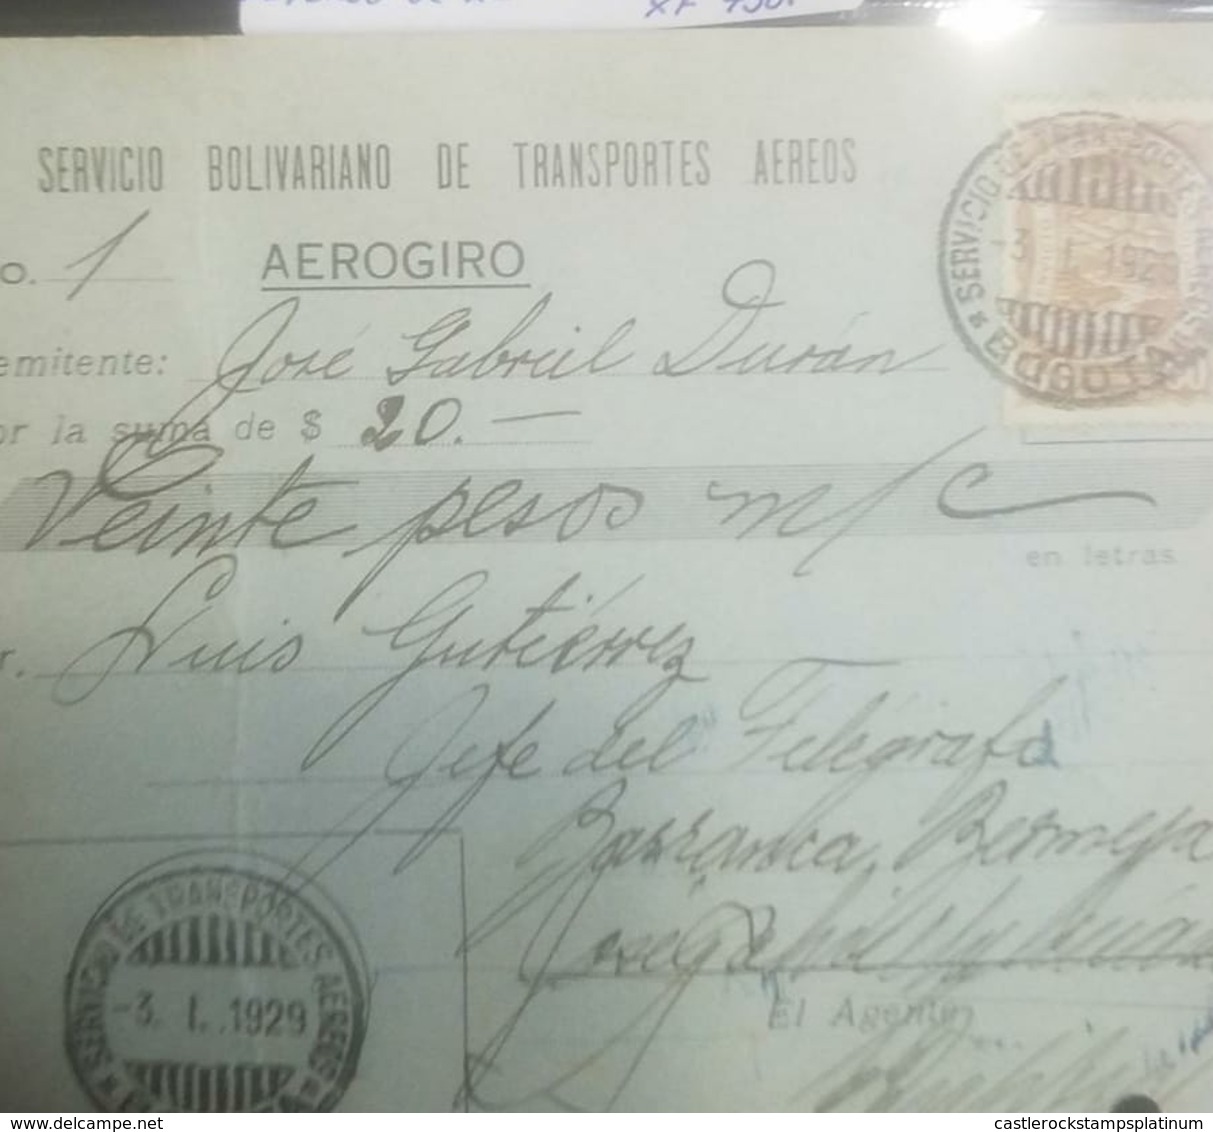 XF 450.
SERVICIO BOLIVARIANO DE TRANSPORTES AEREOS
o. 1 AEROGIRO
SERVICIO DE TRANSPORTES AEREOS
-3 I. 1929
BOGOTA
emitente: José Gabriel Durán
or la suma de $ 20.—
Veinte pesos m/c
en letras
r. Luis Gutiérrez
Jefe del Telégrafo
Barranca Bermeja
El Agente,
SERVICIO DE TRANSPORTES AEREOS
-3. I. 1929
www.delcampe.net
castlerockstampsplatinum